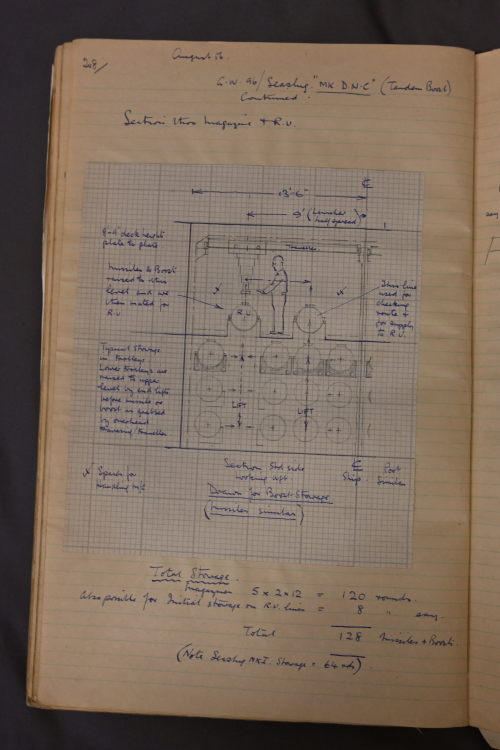 208/
August 56.
G.W. 96/Seaslug "MK D.N.C" (Tandem Boost)
Continued.
Section thro magazine & R.U.
℄
13'-6"
9' (Launcher
half spread)
8'-6" deck height
plate to plate
Traveller
Missiles & Boost
raised to this
level and are
then mated for
R.U
This line
used for
checking
route &
for supply
to R.U.
R.U.
Typical Storage
in trolleys
Lower trolleys are
raised to upper
level by end lifts
before missile or
boost is grabbed
by overhead
traversing traveller
LIFT
LIFT
Section Stbd side
looking aft.
℄
Ship
Port
Similar
Space for
Handling m/c
Drawn for Boost Storage.
(Missiles similar)
Total Storage.
Magazines 5 x 2 x 12 = 120 rounds.
Also possible for Initial storage on R.U. lines = 8 " say.
Total 128 Missiles + Boosts.
(Note Seaslug MK I. Storage = 64 rds).